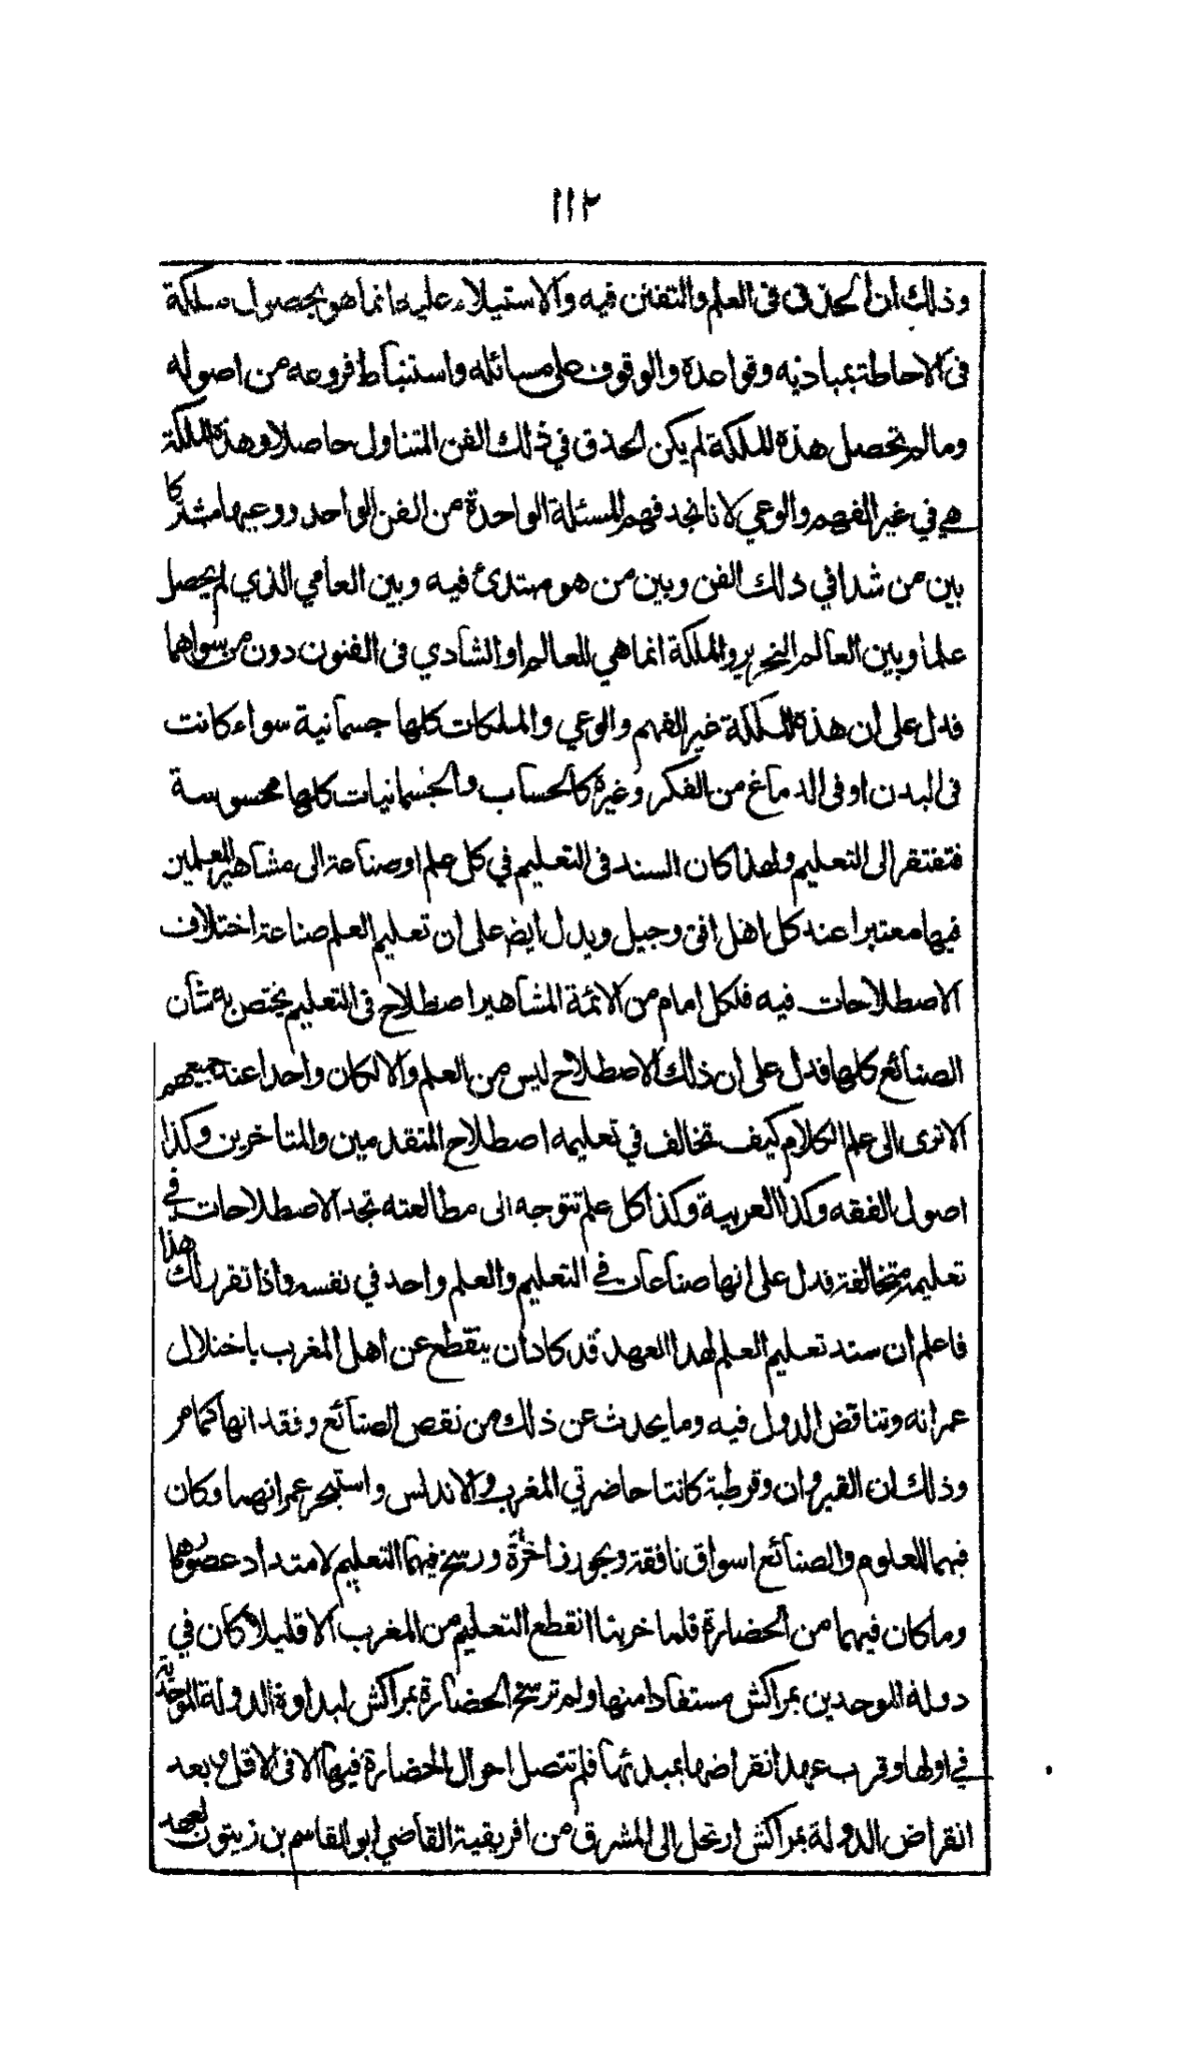 ١١٢
وذلك ان الحذق فى العلم والتفنن فيه والاستيلاء عليه انما هو بحصول ملكة
فى الاحاطة بمباديه وقواعده والوقوف على مسائله واستنباط فروعه من اصوله
ومالم تحصل هذه الملكة لم يكن الحذق في ذلك الفن المتناول حاصلا وهذه الملكة
هي في غير الفهم والوعي لانا نجد فهم المسئلة الواحدة من الفن الواحد ووعيها مشتركا
بين من شدا في ذلك الفن وبين من هو مبتدئ فيه وبين العامي الذي لم يحصل
علما وبين العالم النحرير والملكة انما هي للعالم او الشادي فى الفنون دون من سواهما
فدل على ان هذه الملكة غير الفهم والوعي والملكات كلها جسمانية سواء كانت
فى البدن او فى الدماغ من الفكر وغيره كالحساب والجسمانيات كلها محسوسة
فتفتقر الى التعليم ولهذا كان السند فى التعليم في كل علم او صناعة الى مشاهير المعلمين
فيها معتبرا عند كل اهل افق وجيل ويدل ايضا على ان تعليم العلم صناعة اختلاف
الاصطلاحات فيه فلكل امام من الائمة المشاهير اصطلاح فى التعليم يختص به شأن
الصنائع كلها فدل على ان ذلك الاصطلاح ليس من العلم والا لكان واحدا عند جميعهم
الا ترى الى علم الكلام كيف تخالف في تعليمه اصطلاح المتقدمين والمتاخرين وكذا
اصول الفقه وكذا العربية وكذا كل علم تتوجه الى مطالعته تجد الاصطلاحات في
تعليمه متخالفة فدل على انها صناعات في التعليم والعلم واحد في نفسه واذا تقرر لك هذا
فاعلم ان سند تعليم العلم لهذا العهد قد كاد ان ينقطع عن اهل المغرب باختلال
عمرانه وتناقض الدول فيه وما يحدث عن ذلك من نقص الصنائع وفقدانها كما مر
وذلك ان القيروان وقرطبة كانتا حاضرتي المغرب والاندلس واستبحر عمرانهما وكان
فيهما للعلوم والصنائع اسواق نافقة وبحور زاخرة ورسخ فيهما التعليم لامتداد عصورهما
وما كان فيهما من الحضارة فلما خربتا انقطع التعليم من المغرب الا قليلا كان في
دولة الموحدين بمراكش مستفادا منها ولم ترسخ الحضارة بمراكش لبداوة الدولة الموحدية
في اولها وقرب عهد انقراضها بمبدئها فلم تتصل احوال الحضارة فيها الا فى الاقل وبعد
انقراض الدولة بمراكش ارتحل الى المشرق من افريقية القاضي ابو القاسم بن زيتون لعهد